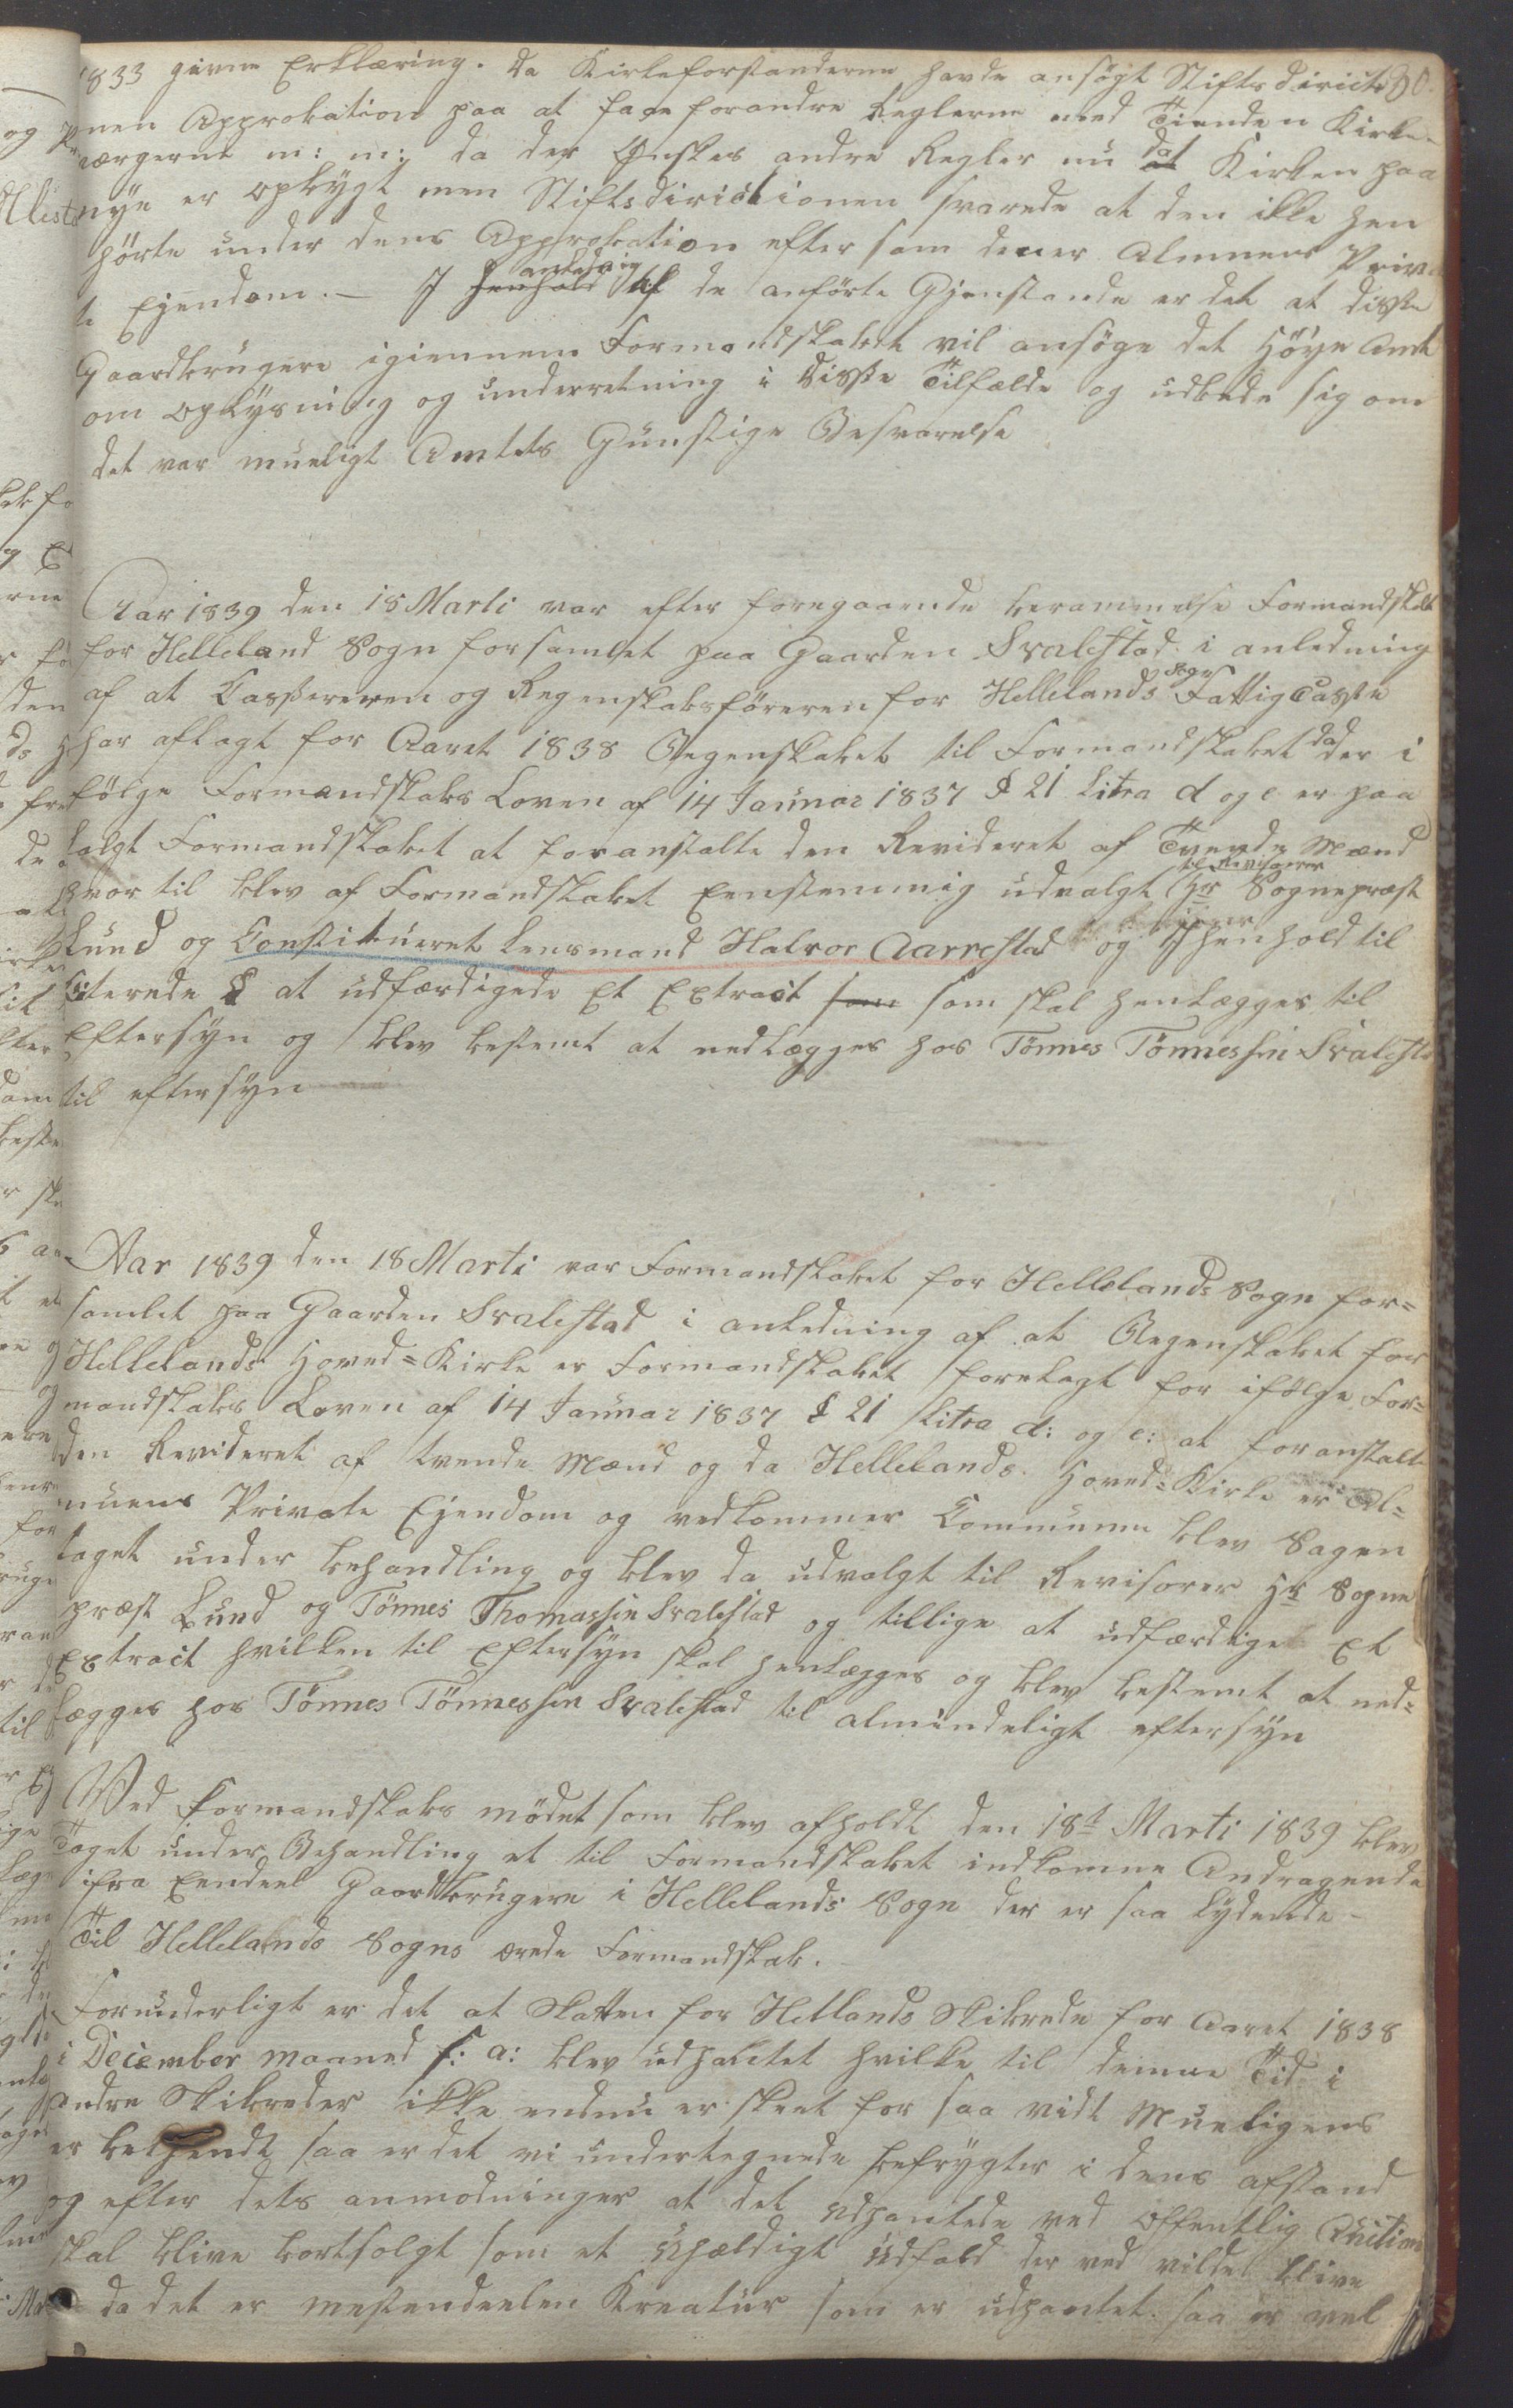 1833 givne Erklæring. Da Kirkeforstanderne havde ansøgt Stiftsdirictio 30.
nen Approbation paa at faae forandre Reglerne med Tienden Kirke-
værgerne m: m: da der Ønskes andre Regler nu da at Kirken paa
nye er opbygt men Stiftsdirictionen svarede at den ikke hen
hørte under dens Approbation eftersom den er Almuens Priva
te Ejendom. – I henhold anledning til de anførte Gjenstande er det at disse
Gaardbrugere igiennem Formandskabet vil ansøge det Høye Amt
om oplysning og underretning i disse Tilfælde og udbede sig om
det var mueligt Amtets Günstige Besvarelse
Aar 1839 den 18 Marti var efter foregaaende berammelse Formandskabet
for Helleland Sogn forsamlet paa Gaarden Svalestad i anledning
af at Cassereren og Regenskabsføreren for Hellelands Sogns Fattig Casse
har aflagt for Aaret 1838 Regenskabet til Formandskabet da der i
følge Formandskabs Loven af 14 Januar 1837 § 21 Litra d og e er paa
lagt Formandskabet at foranstalte den Revideret af Tvende Mænd
hvor til blev af Formandskabet Eenstemmig udvalgt til Revisorer Hr Sogneprest
Lund og Constitueret Lensmand Halvor Aarrestad og I henhold til
Citerede § at udfærdigede Et Extract som som skal henlægges til
Eftersyn og blev bestemt at nedlægges hos Tönnes Tönnessen Svalesta
til eftersyn
Aar 1839 den 18 Marti var Formandskabet for Hellelands Sogn for=
samlet paa Gaarden Svalestad i anledning af at Regenskabet for
Hellelands Hoved=Kirke er Formandskabet forelagt for ifølge For=
mandskabs Loven af 14 Januar 1837 § 21 Litra d: og e: at foranstalte
den Revideret af tvende Mænd og da Hellelands Hoved=Kirke er Al=
muens Private Ejendom og vedkommer Communen blev Sagen
taget under behandling og blev da udvalgt til Revisorer Hr Sogne
præst Lund og Tönnes Thomassen Svalestad og tillige at udfærdige Et
Extract hvilken til Eftersyn skal henlægges og blev bestemt at ned=
lægges hos Tönnes Tönnessen Svalestad til almindeligt eftersyn
Ved Formandskabs mödet som blev afholdt den 18t Marti 1839 blev
Taget under Behandling et til Formandskabet indkomne Andragende
ifra Eendeel Gaardbrugere i Hellelands Sogn der er saa lydende –
Til Hellelands Sogns ærede Formandskab.
Forunderligt er det at Skatten for Hetlands Skibrede for Aaret 1838
i December maaned f: a: blev udpantet hvilke til denne Tid i
andre Skibreder ikke endnu er skeet for saa vidt Mueligens
er bekjendt saa er det vi undertegnede befrygter i dens afstand
og efter dets anmodninger at det udpantede ved offentlig Auction
skal blive bortsolgt som et uhældigt udfald der ved vilde blive
da det er mestendeelen Kreatür som er udpantet saa er vel